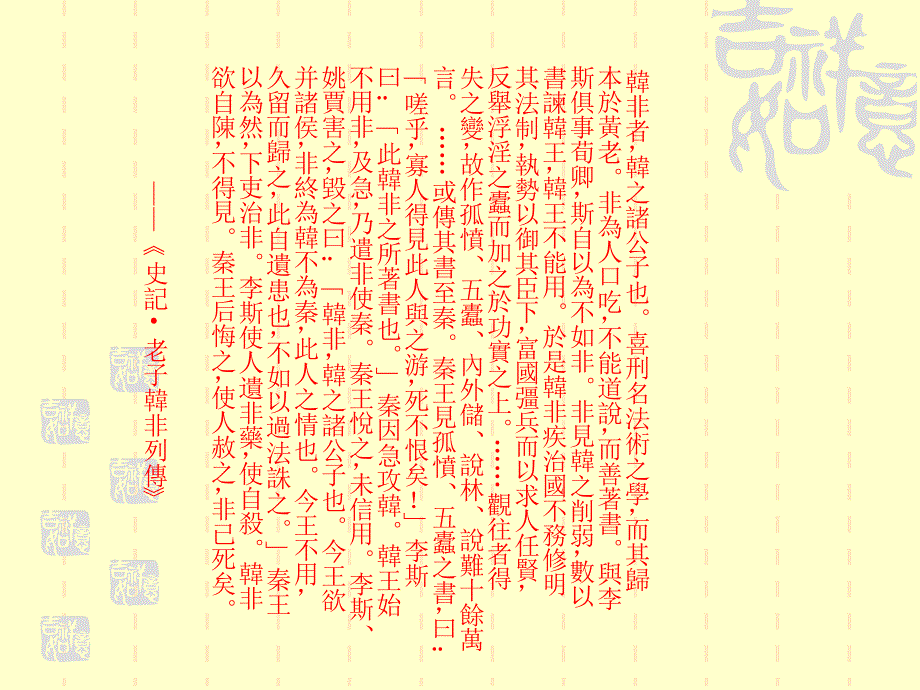 韓非者,韓之諸公子也。喜刑名法術之學,而其歸
本於黃老。非為人口吃,不能道說,而善著書。與李
斯俱事荀卿,斯自以為不如非。非見韓之削弱,數以
書諫韓王,韓王不能用。於是韓非疾治國不務修明
其法制,執勢以御其臣下,富國彊兵而以求人任賢,
反舉浮淫之蠹而加之於功實之上。……觀往者得
失之變,故作孤憤、五蠹、內外儲、說林、說難十餘萬
言。……或傳其書至秦。秦王見孤憤、五蠹之書,曰:
「嗟乎,寡人得見此人與之游,死不恨矣!」李斯
曰:「此韓非之所著書也。」秦因急攻韓。韓王始
不用非,及急,乃遣非使秦。秦王悅之,未信用。李斯、
姚賈害之,毀之曰:「韓非,韓之諸公子也。今王欲
并諸侯,非終為韓不為秦,此人之情也。今王不用,
久留而歸之,此自遺患也,不如以過法誅之。」秦王
以為然,下吏治非。李斯使人遺非藥,使自殺。韓非
欲自陳,不得見。秦王后悔之,使人赦之,非已死矣。
——《史記·老子韓非列傳》
吉祥如意
吉祥如意
吉祥如意
吉祥如意
吉祥如意
吉祥如意
吉祥如意